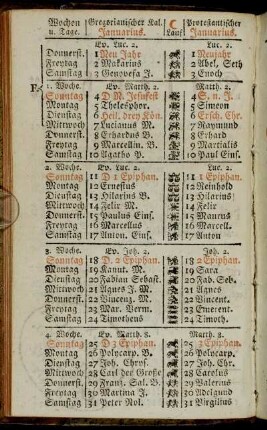 Wochen Gregorianischer Kal. C Protestantischer
u. Tage. Januarius. Lauf Januarius.
Ev. Luc. 2. Luc. 2.
Donnerst. 1 Neu Jahr 1 Neujahr
Freytag 2 Makarius 2 Abel, Seth
Samstag 3 Genovefa J. 3 Enoch
1. Woche. Ev. Matth. 2. Matth. 2.
Sonntag 4 D N. Jesufest 4 S. n. J.
Montag 5 Thelesphor. 5 Simeon
Dienstag 6 Heil. drey Kön. 6 Ersch. Chr.
Mittwoch 7 Lucianus M. 7 Raymund
Donnerst. 8 Erhardus B. 8 Erhard
Freytag 9 Marcellin. B. 9 Martialis
Samstag 10 Agatho P. 10 Paul Eins.
2. Woche. Ev. Luc. 2. Luc. 2.
Sonntag 11 D 1 Epiphan. 11 1 Epiphan.
Montag 12 Ernestus 12 Reinhold
Dienstag 13 Hilarius B. 13 Hilarius
Mittwoch 14 Felix M. 14 Felix
Donnerst. 15 Paulus Eins. 15 Maurus
Freytag 16 Marcellus 16 Marcell.
Samstag 17 Anton. Eins. 17 Anton
3. Woche. Ev. Joh. 2. Joh. 2.
Sonntag 18 D. 2 Epiphan. 18 2 Epiphan.
Montag 19 Kanut. M. 19 Sara
Dienstag 20 Fabian Sebast. 20 Fab. Seb.
Mittwoch 21 Agnes J. M. 21 Agnes
Donnerst. 22 Vincenz. M. 22 Vincent.
Freytag 23 Mar. Verm. 23 Emerent.
Samstag 24 Timotheus 24 Timoth.
4. Woche. Ev. Matth. 8. Matth. 8.
Sonntag 25 D 3 Epiphan. 25 3 Epiphan.
Montag 26 Polycarp. B. 26 Polycarp.
Dienstag 27 Joh. Chrys. 27 Joh. Chr.
Mittwoch 28 Carl der Große 28 Carolus
Donnerst. 29 Franz. Sal. B. 29 Valerius
Freytag 30 Martina J. 30 Adelgund
Samstag 31 Peter Nol. 31 Virgilius